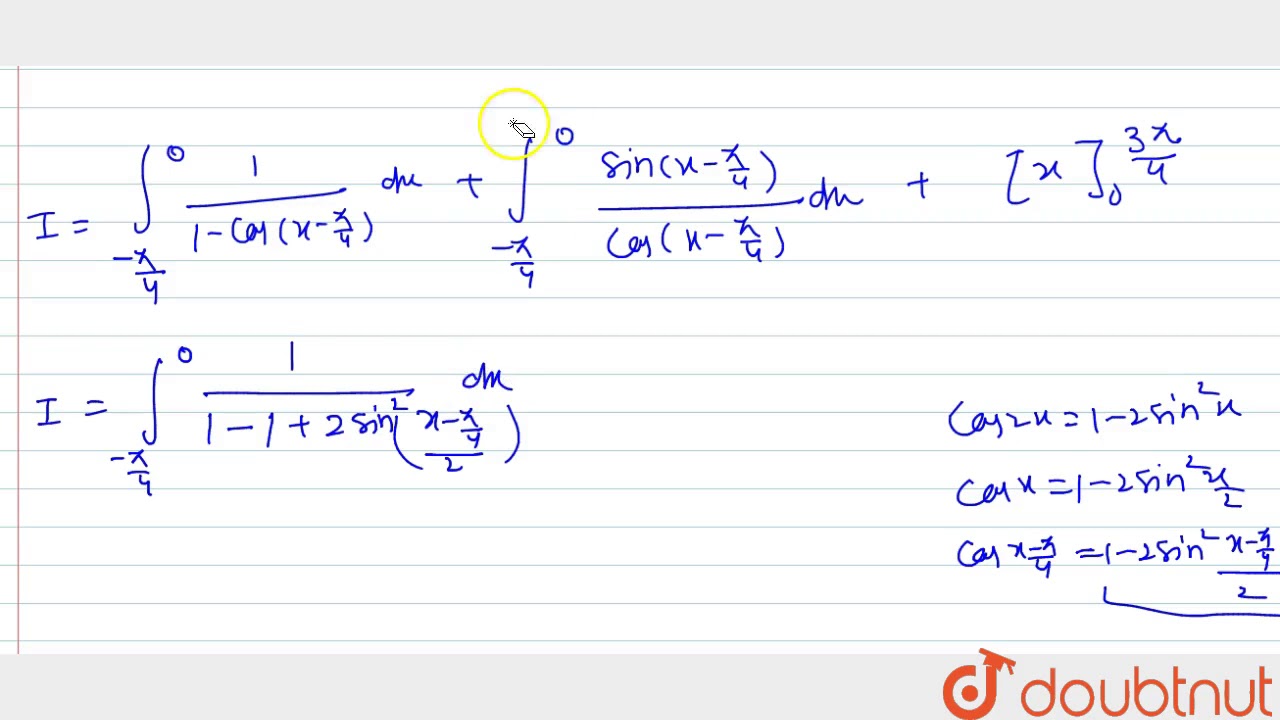 I = ∫_{-π/4}^{0} 1/(1 - Cos(x - π/4)) dx + ∫_{-π/4}^{0} sin(x - π/4)/Cos(x - π/4) dx + [x]_{0}^{3π/4}
I = ∫_{-π/4}^{0} 1/(1 - 1 + 2 sin²((x - π/4)/2)) dx
Cos2x = 1 - 2sin²x
Cos x = 1 - 2sin² x/2
Cos x - π/4 = 1 - 2sin² (x - π/4)/2
doubtnut